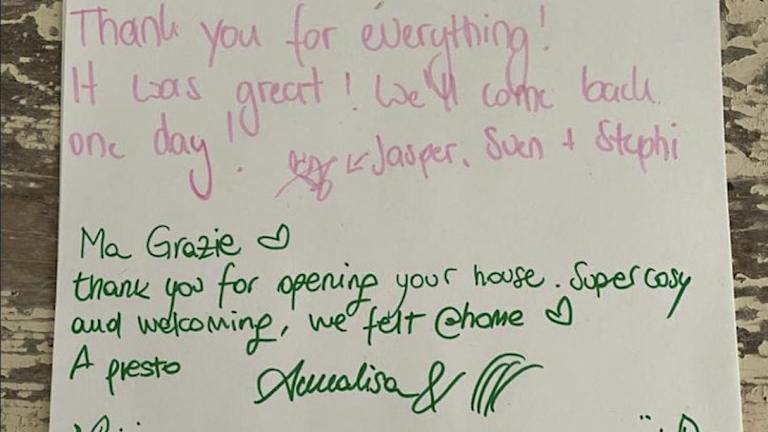 Thank you for everything!
It was great! We'll come back
one day!
Jasper, Sven + Stephi
Ma Grazie ♡
thank you for opening your house. Super cosy
and welcoming, we felt @home ♡
A presto
Annalisa &